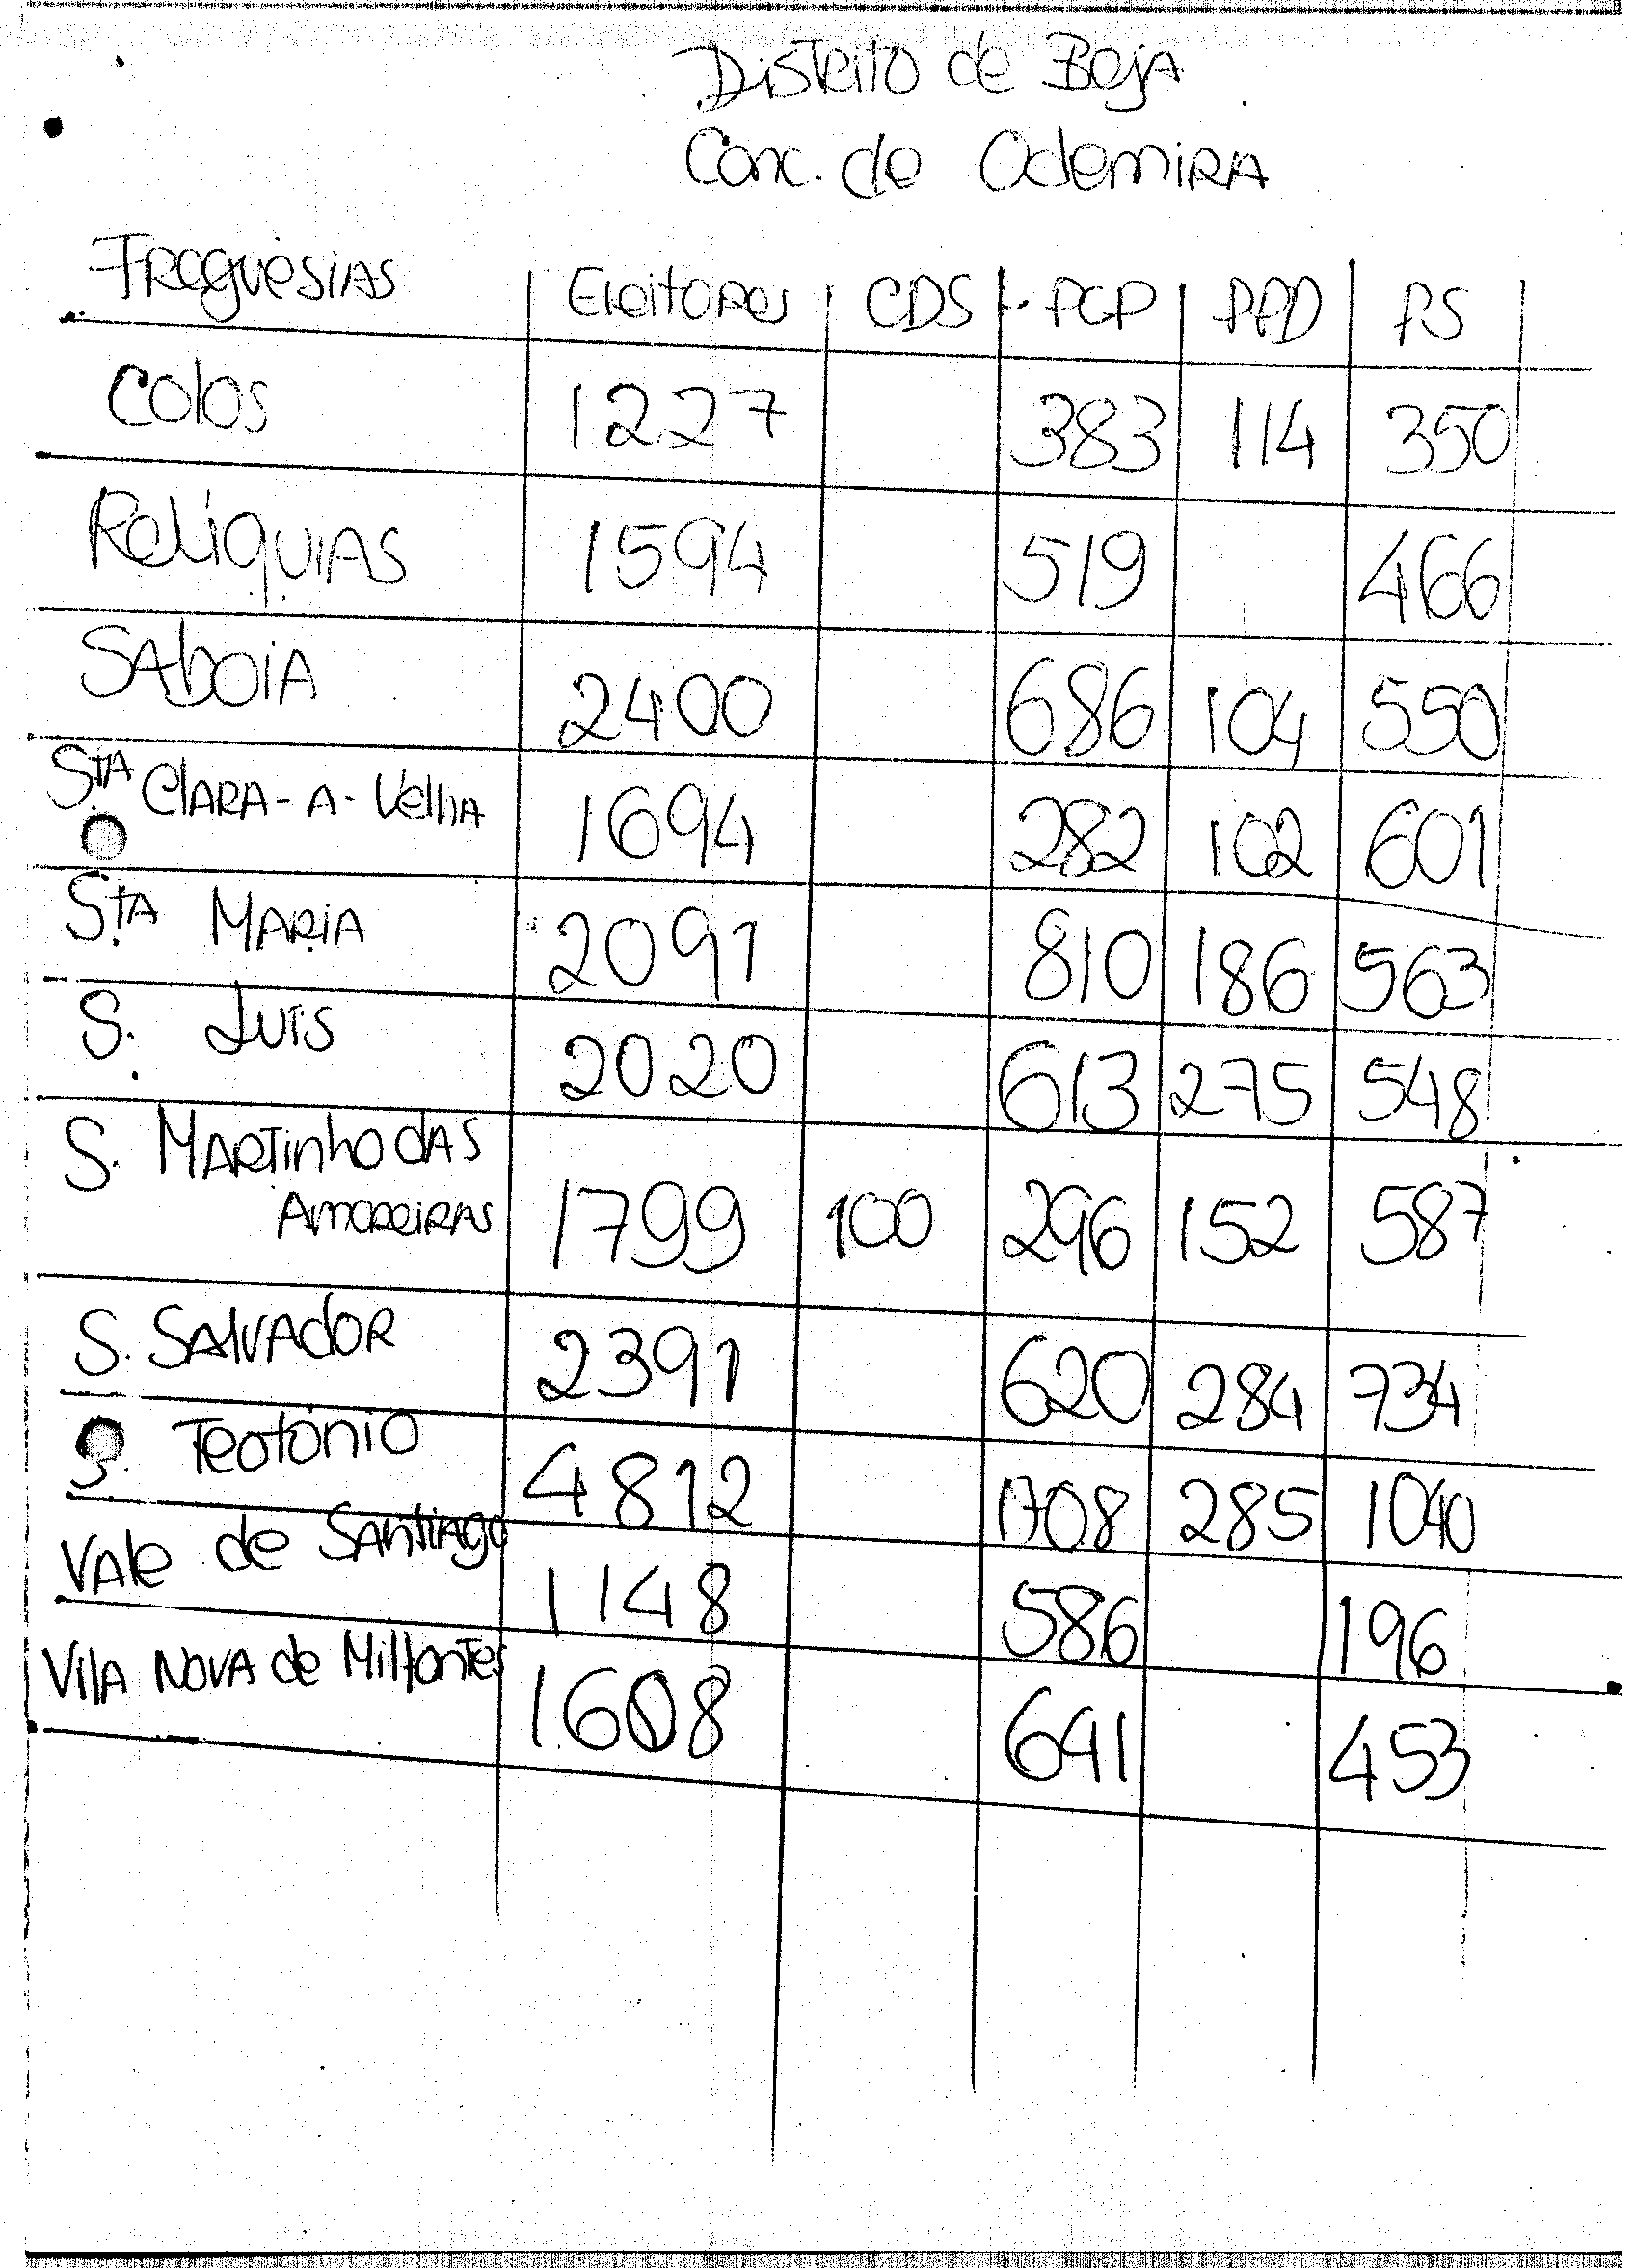 Distrito de Beja
Conc. de Odemira
Freguesias Eleitores CDS PCP PPD PS
Colos 1227 383 114 350
Reliquias 1594 519 466
Saboia 2400 686 104 550
Sta Clara-a-Velha 1694 282 102 601
Sta Maria 2091 810 186 563
S. Luis 2020 613 275 548
S. Martinho das
Amoreiras 1799 100 296 152 587
S. Salvador 2391 620 284 734
S. Teotónio 4812 1708 285 1040
Vale de Santiago 1148 586 196
Vila Nova de Milfontes 1608 641 453